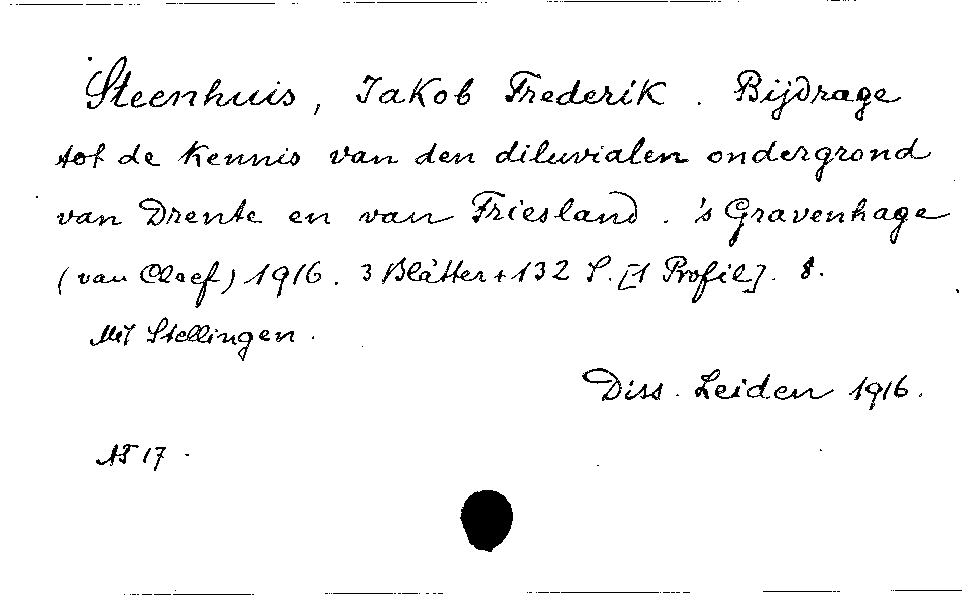 Steenhuis, Jakob Frederik. Bijdrage
tot de kennis van den diluvialen ondergrond
van Drente en van Friesland. 's Gravenhage
(van Cleef) 1916. 3 Blätter + 132 S. [1 Profil]. 8.
Mit Stellingen.
Diss. Leiden 1916.
17